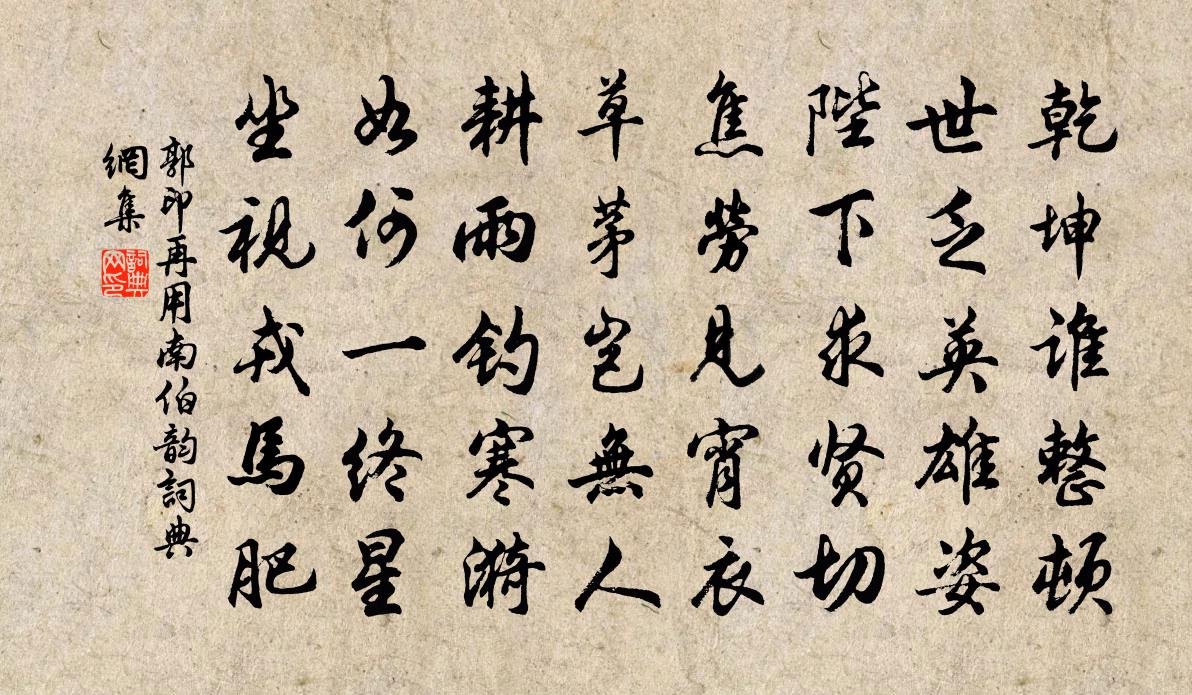 乾坤誰整頓
世乏英雄姿
陛下求贤切
焦勞見宵衣
草茅豈無人
耕雨釣寒漪
如何一終星
坐視戎馬肥
郭印再用南伯韵詞典
網集
詞典
网印